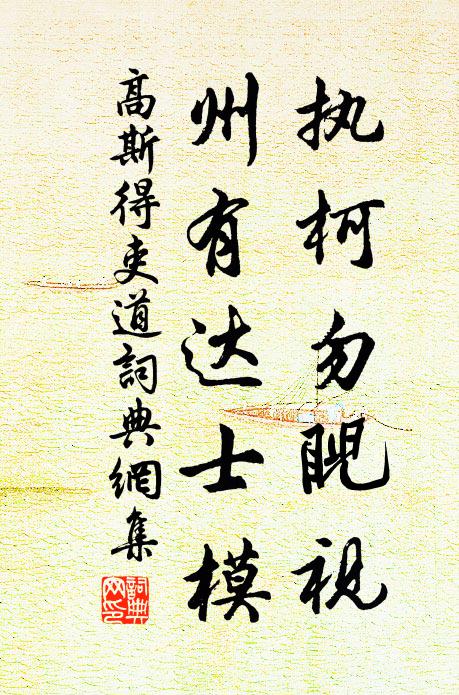 执柯勿睨视
州有达士模
高斯得吏道詞典網集
詞典